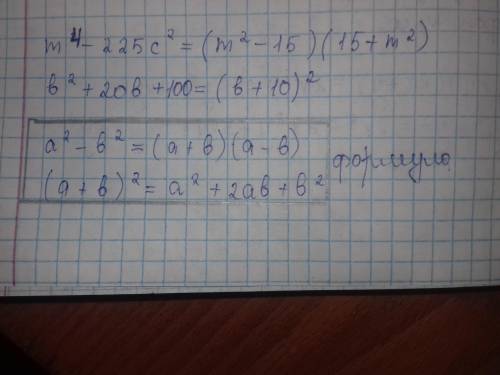 m⁴ - 225c² = (m² - 15)(15 + m²)
в² + 20в + 100 = (в + 10)²
a² - в² = (a + в)(a - в)
(a + в)² = a² + 2aв + в²
формула